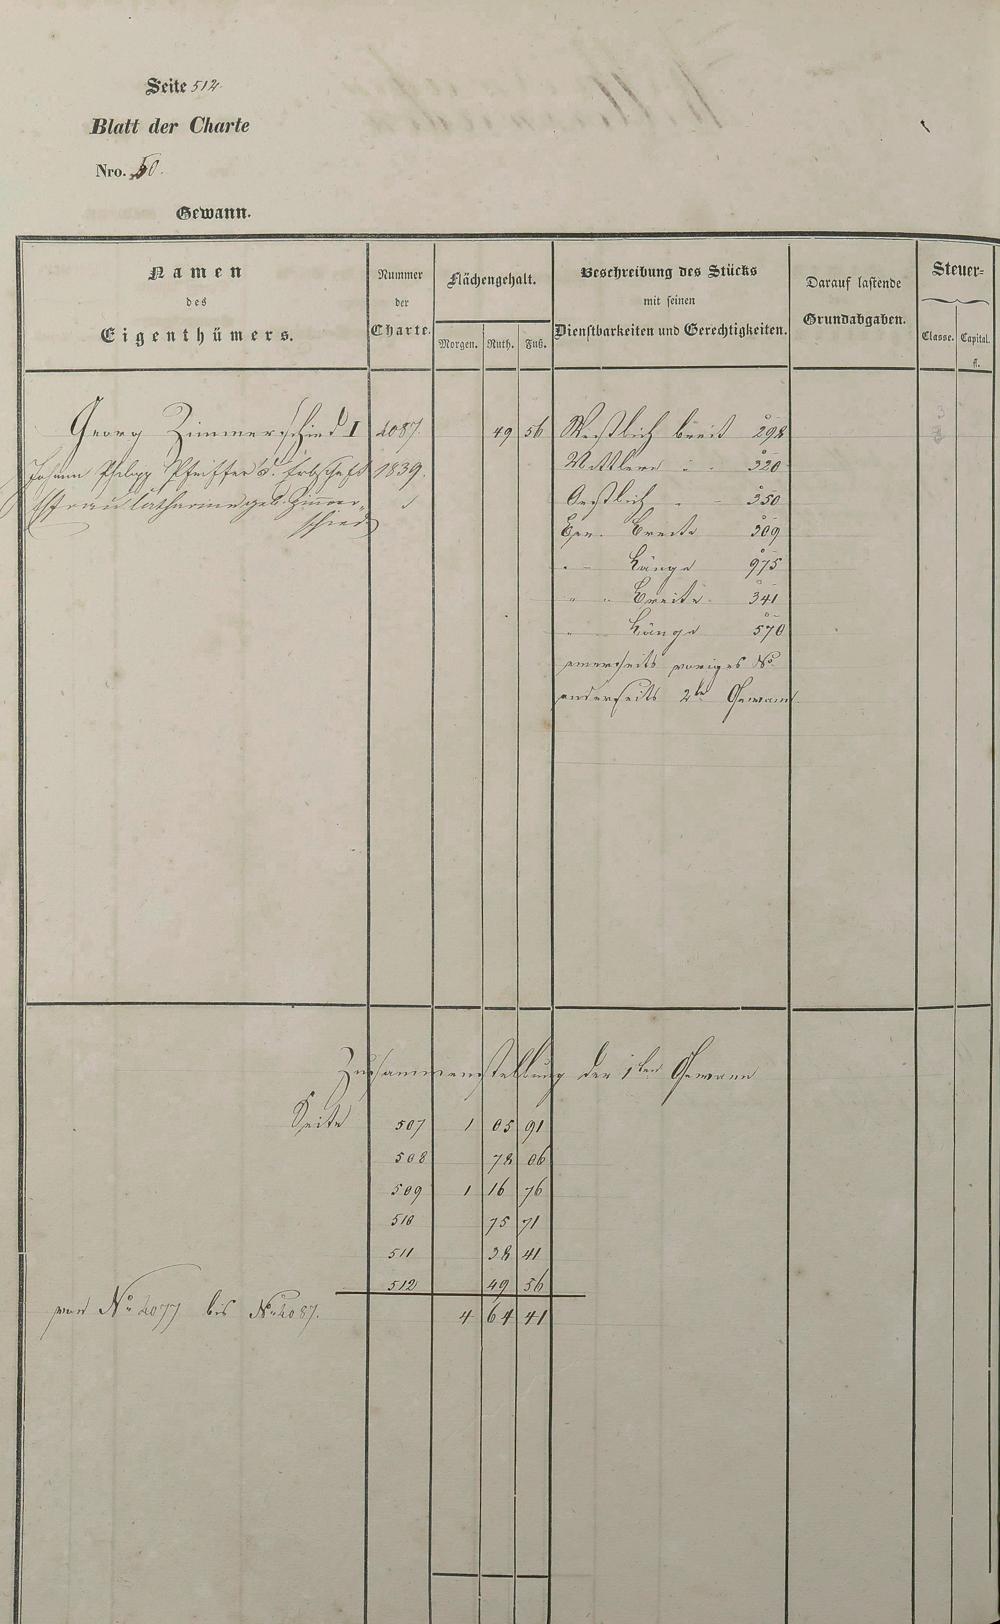 Seite 512.
Blatt der Charte
Nro. 50.
Gewann.
Namen
des
Eigenthümers.
Nummer
der
Charte.
Flächengehalt.
Morgen. Ruth. Fuß.
Beschreibung des Stücks
mit seinen
Dienstbarkeiten und Gerechtigkeiten.
Darauf lastende
Grundabgaben.
Steuer-
Classe. Capital.
fl.
Georg Zimmerschied I 2087. 49 56 Westlich breit 298
Johann Philipp Pfeiffer Erbschaft 1839. Mittlere " - 320
Ehefrau Catharine geb. Zimmer- Oestlich " - 350
schied
Gew. Breite 309
" - Länge 975
" " Breite 341
" - Länge 570
einerseits voriges No
anderseits 2te Gewann
Zusammenstellung der 1ten Gewann
Seite 507 1 05 91
508 78 06
509 1 16 76
510 75 71
511 38 41
512 49 56
von No 2077 bis No 2087. 4 64 41